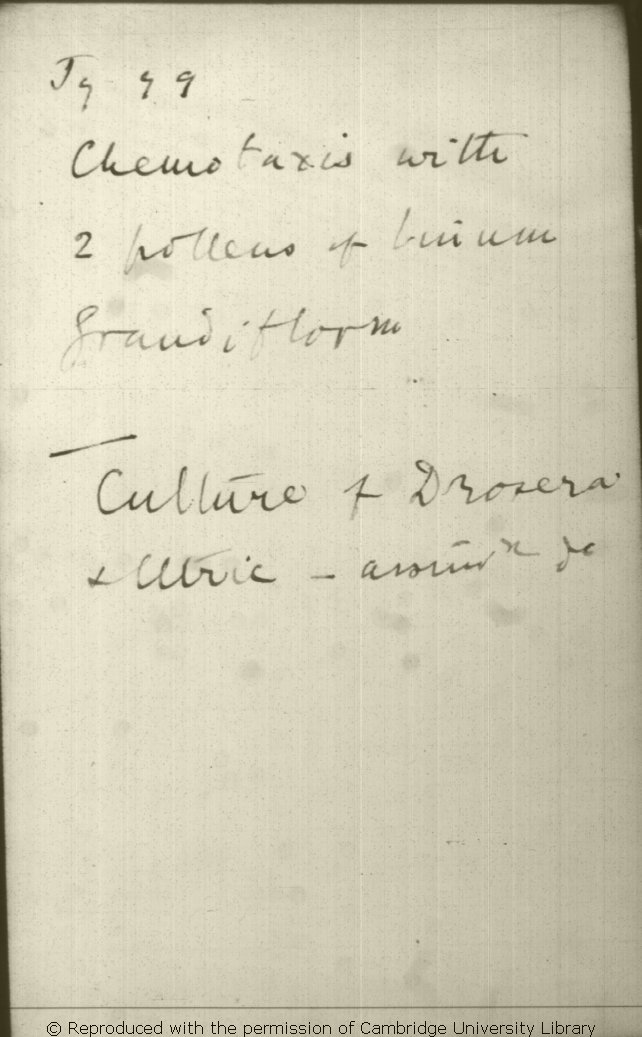 Jy 99
Chemotaxis with
2 pollens of Linum
grandiflorm
Culture of Drosera
& Utric –
© Reproduced with the permission of Cambridge University Library